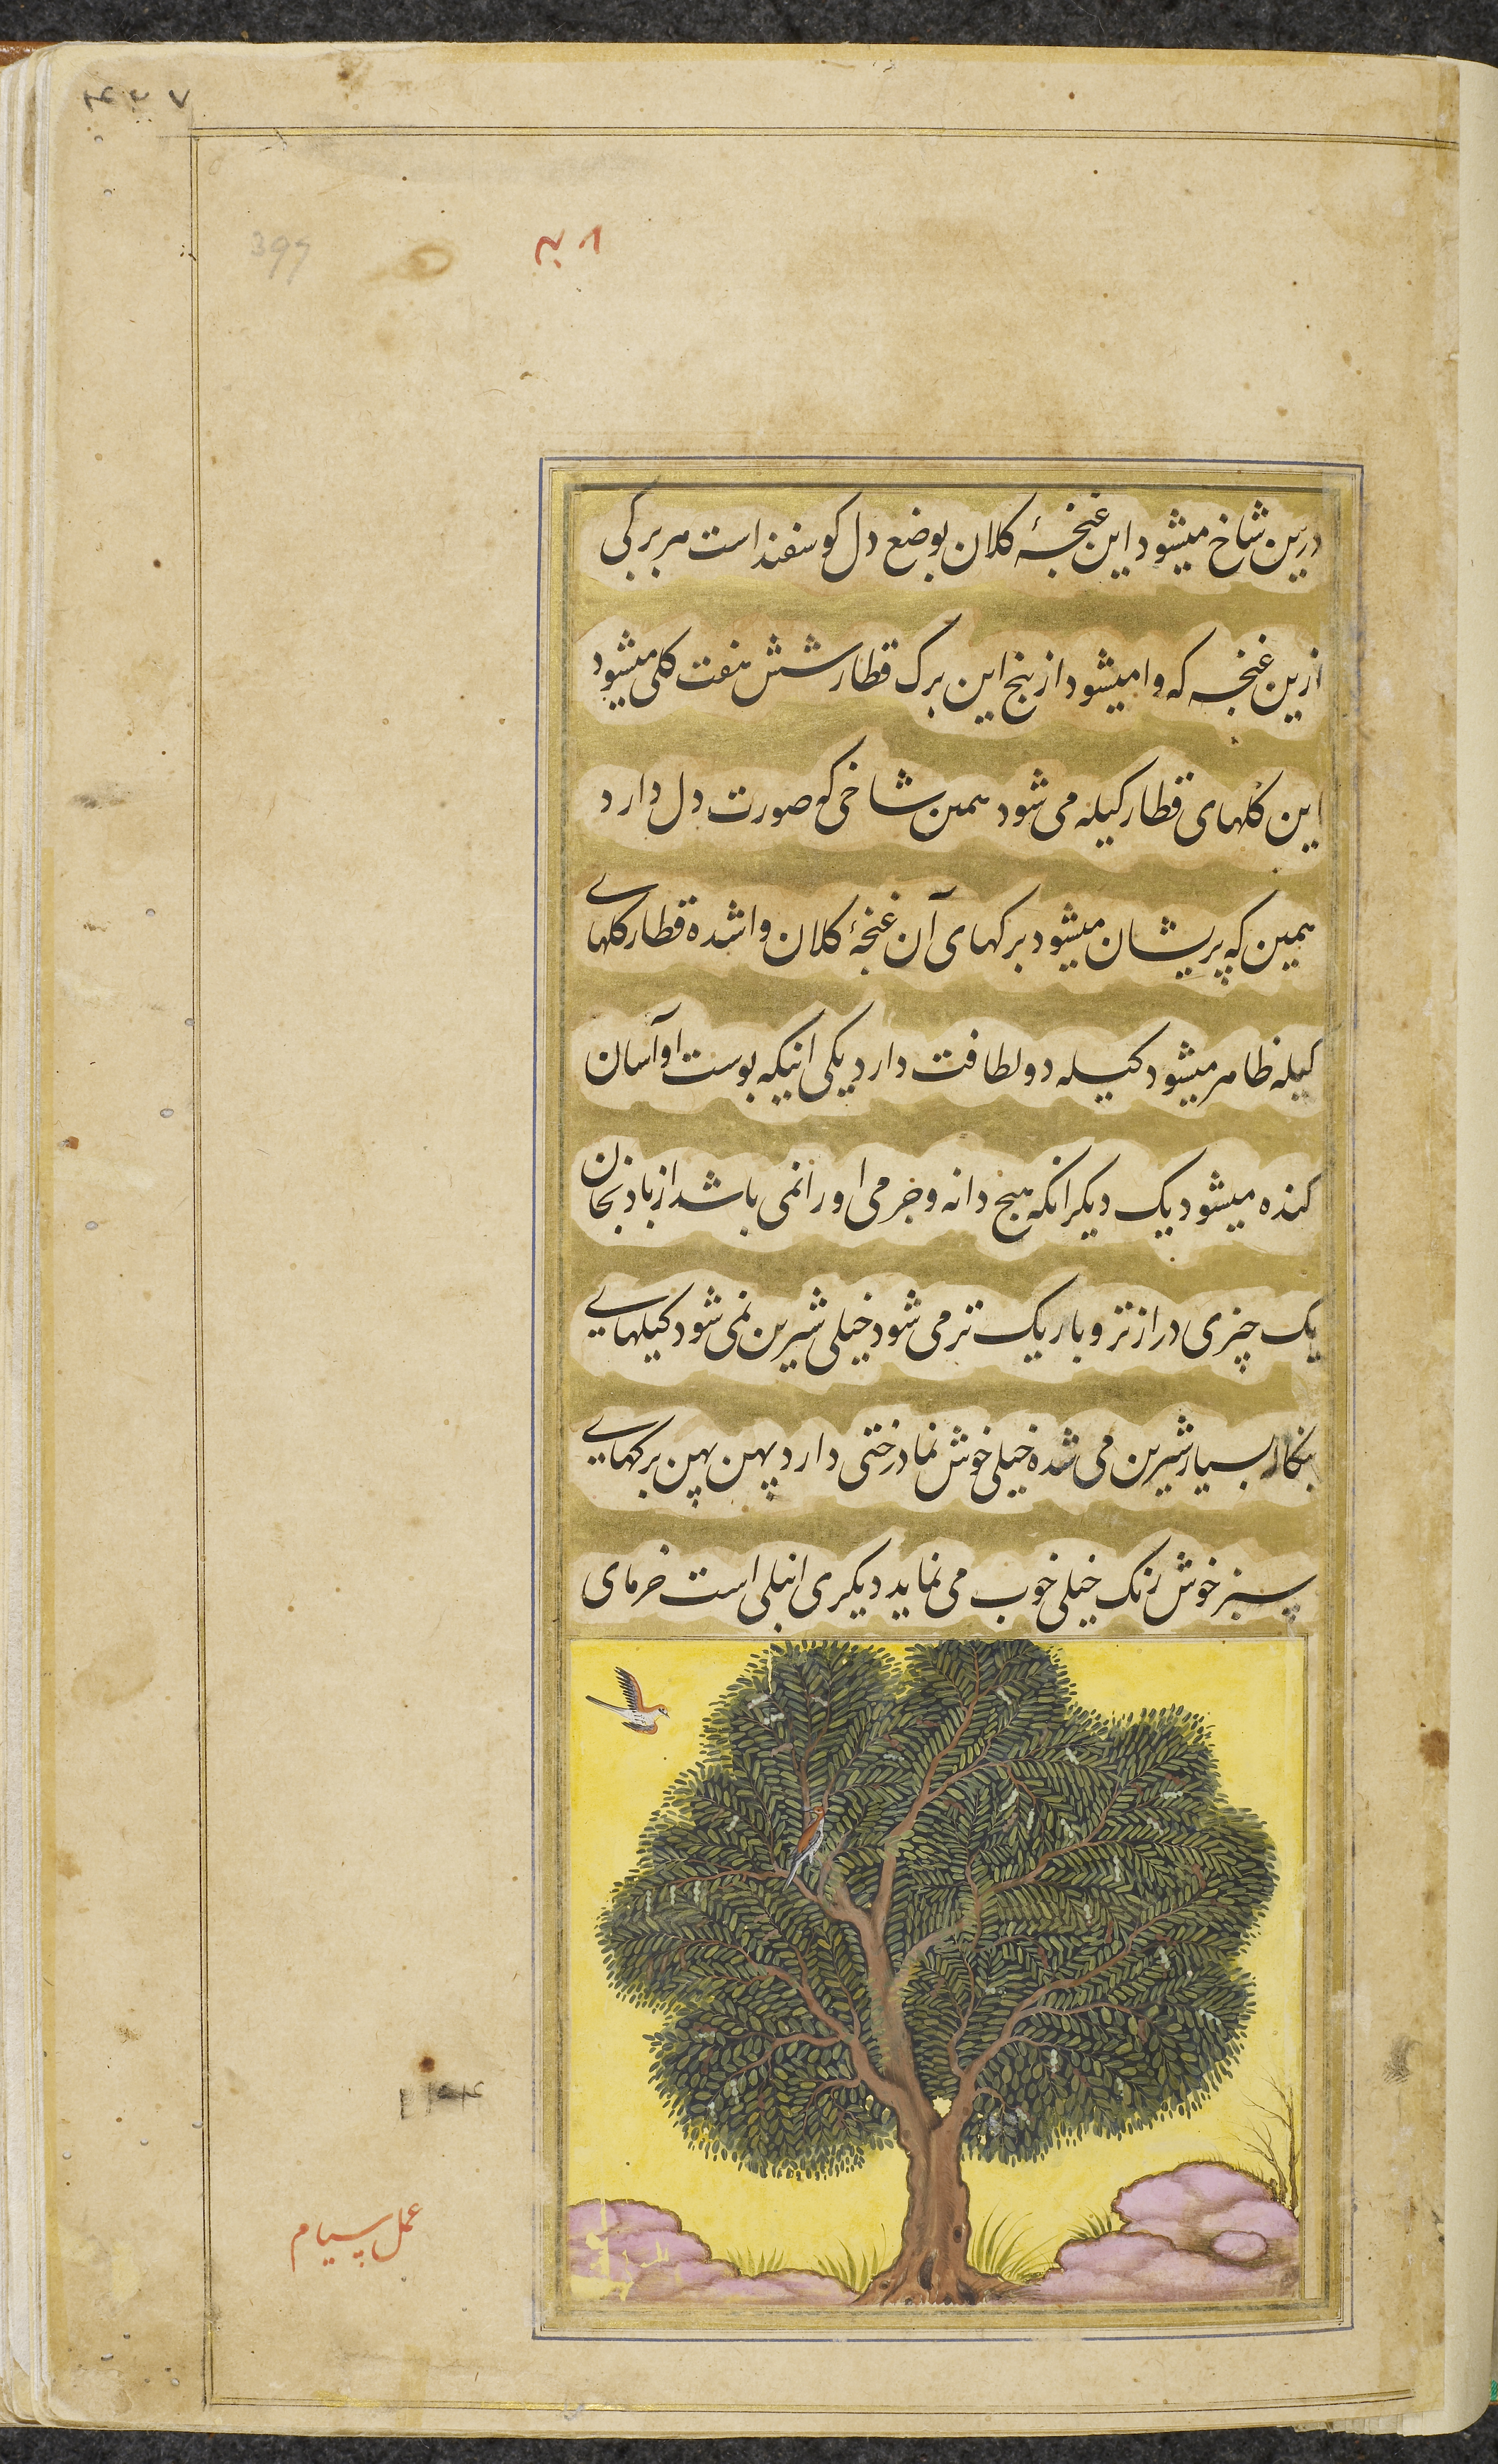 درین شاخ میشود این غنچهٔ کلان بوضع دل کوسفند است هر برکی
ازین غنچه که وا میشود از بیخ این برک قطار شش هفت کلی میشود
این کلهای قطار کیله می شود همین شاخی که صورت دل دارد
همین که پریشان میشود برکهای آن غنچهٔ کلان وا شده قطار کلهای
کیله ظاهر میشود کیله دو لطافت دارد یکی اینکه پوست او آسان
کنده میشود یک دیکر انکه هیچ دانه و جرمی او را نمی باشد از بادنجان
یک چیزی درازتر و باریک تر می شود خیلی شیرین نمی شود کیلهای
بنکاله بسیار شیرین می شده خیلی خوش نما درختی دارد پهن پهن برکهای
سبز خوش رنک خیلی خوب می نماید دیکری انبلی است خرمای
عمل سیام